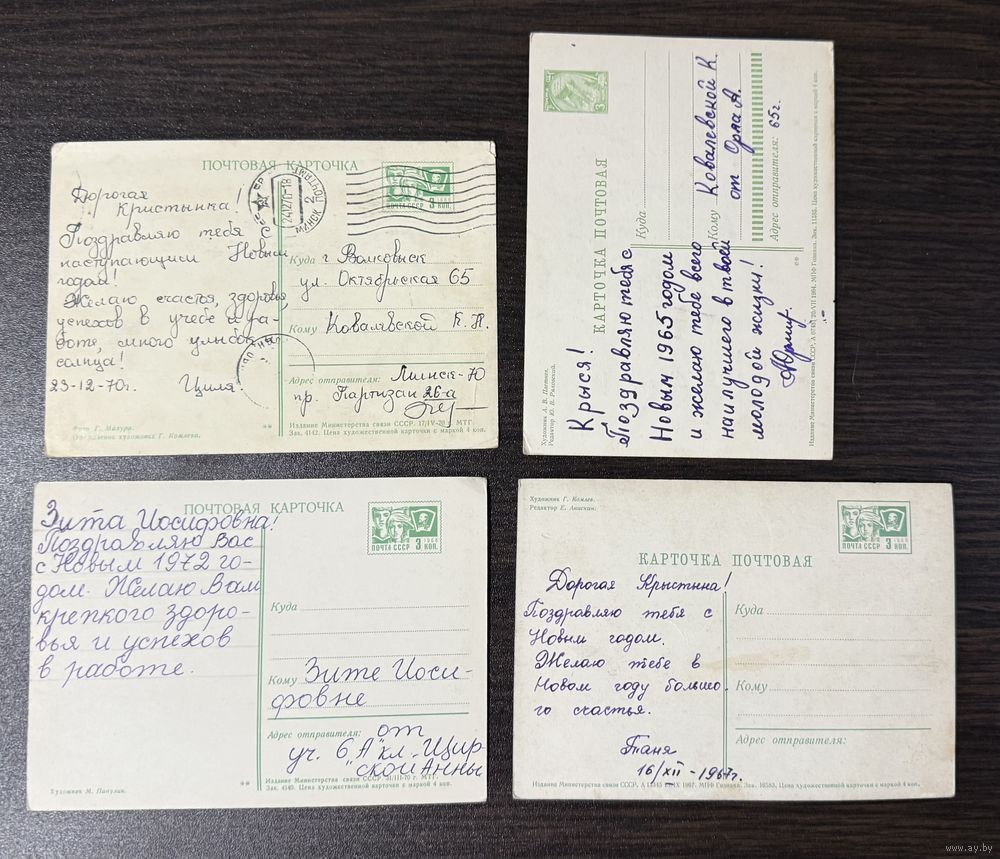 ПОЧТОВАЯ КАРТОЧКА
Дорогая
Кристынка!
Поздравляю тебя с
наступающим Новым
годом!
Желаю счастья, здоровья
успехов в учебе и ра-
боте, много улыбок
солнца!
23-12-70г. Циля
МИНСК ПОЧТАМТ
241270-18
ПОЧТА СССР 3 КОП.
Куда г. Волковыск
ул. Октябрьская 65
Кому Ковалевской К.
Адрес отправителя: Минск-70
пр. Партизан 26-а
Фото Г. Мазура.
Оформление художника Г. Комлева.
**
Издание Министерства связи СССР. 17/IV-70 г. МТГ.
Зак. 4142. Цена художественной карточки с маркой 4 коп.
КАРТОЧКА ПОЧТОВАЯ
3
Куда
Кому Ковалевской К.
от Орла А.
Адрес отправителя: 65г.
Крыся!
Поздравляю тебя с
Новым 1965 годом
и желаю тебе всего
наилучшего в твоей
молодой жизни!
**
Издание Министерства связи СССР.
ПОЧТОВАЯ КАРТОЧКА
Зита Иосифовна!
Поздравляю Вас
с Новым 1972 го-
дом. Желаю Вам
крепкого здоро-
вья и успехов
в работе.
1966
ПОЧТА СССР 3 КОП.
Куда
Кому Зите Иоси-
фовне
Адрес отправителя: от
уч. 6 "А" кл. Щир-
ской Анны
Художник М. Папулин.
**
Издание Министерства связи СССР. 31/III-70 г. МТГ.
Зак. 4140. Цена художественной карточки с маркой 4 коп.
Художник Г. Комлев.
Редактор Е. Анискин.
1966
ПОЧТА СССР 3 КОП.
КАРТОЧКА ПОЧТОВАЯ
Дорогая Крыстина!
Поздравляю тебя с
Новым годом.
Желаю тебе в
Новом году большо-
го счастья.
Таня
16/XII-1967г.
Куда
Кому
Адрес отправителя:
**
Издание Министерства связи СССР. 1967. МПФ Гознака. Цена художественной карточки с маркой 4 коп.
www.ay.by